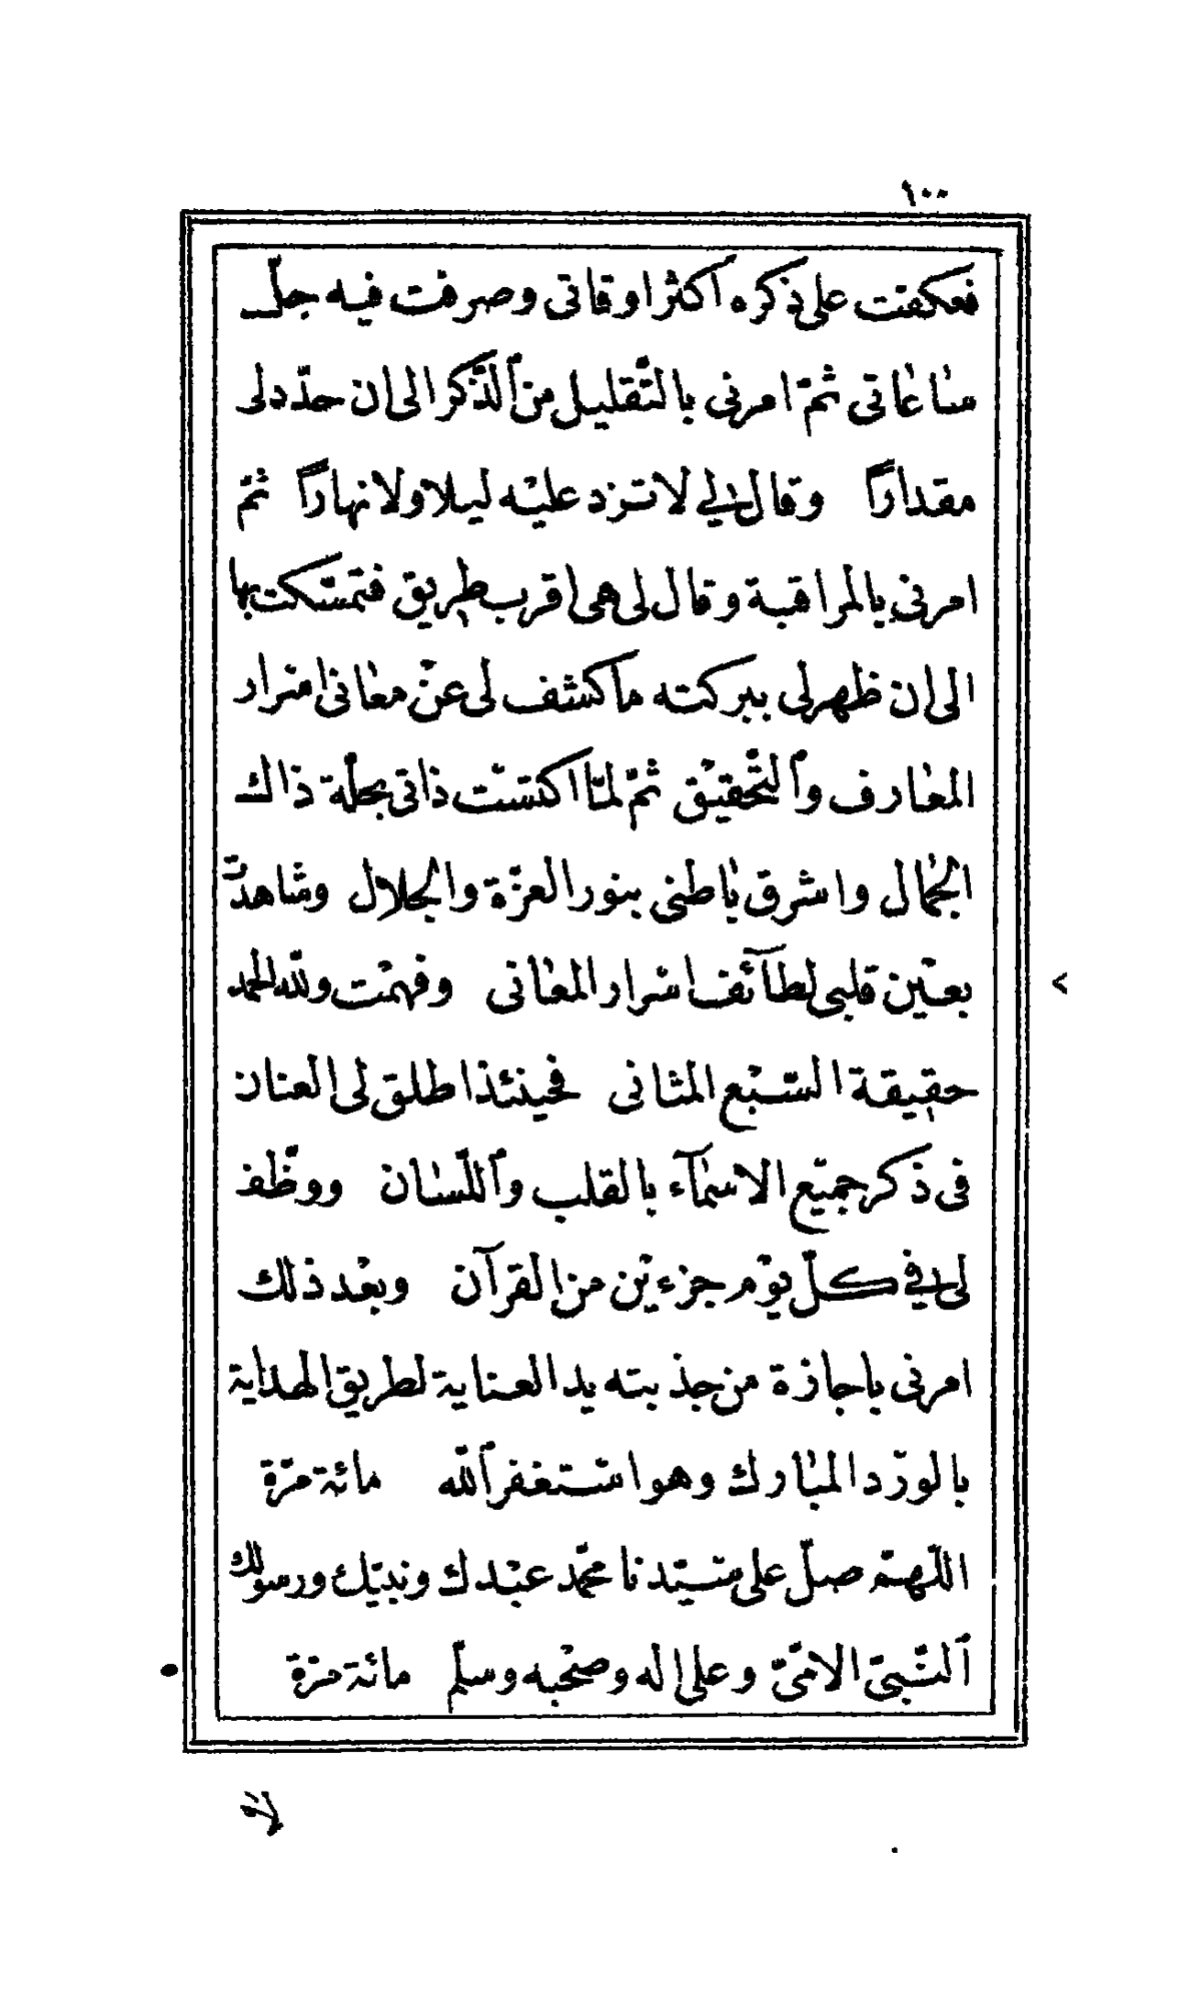 ١٠٠
فعكفت على ذكره اكثر اوقاتى وصرفت فيه جلّ
ساعاتى ثمّ امرنى بالتّقليل من ٱلذّكر الى ان حدّد لى
مقداراً وقال لي لا تزد عليه ليلا ولا نهاراً ثمّ
امرنى بالمراقبة وقال لى هى اقرب طريق فتمسّكت بها
الى ان ظهر لى ببركته ما كشف لى عن معانى اسرار
المعارف وٱلتّحقيق ثمّ لمّا اكتست ذاتى بحلّة ذاك
الجمال واشرق باطنى بنور العزّة والجلال وشاهدت
بعين قلبى لطآئف اسرار المعانى وفهمت ولله الحمد
حقيقة السّبع المثانى فحينئذ اطلق لى العنان
فى ذكر جميع الاسمآء بالقلب وٱللّسان ووظّف
لى في كلّ يوم جزءين من القرآن وبعد ذلك
امرنى باجازة من جذبته يد العناية لطريق الهداية
بالورد المبارك وهو استغفر ٱلله مائة مرّة
اللّهمّ صلّ على سيّدنا محمّد عبدك ونبيّك ورسولك
ٱلنّبىّ الامّىّ وعلى اله وصحبه وسلّم مائة مرّة
لا